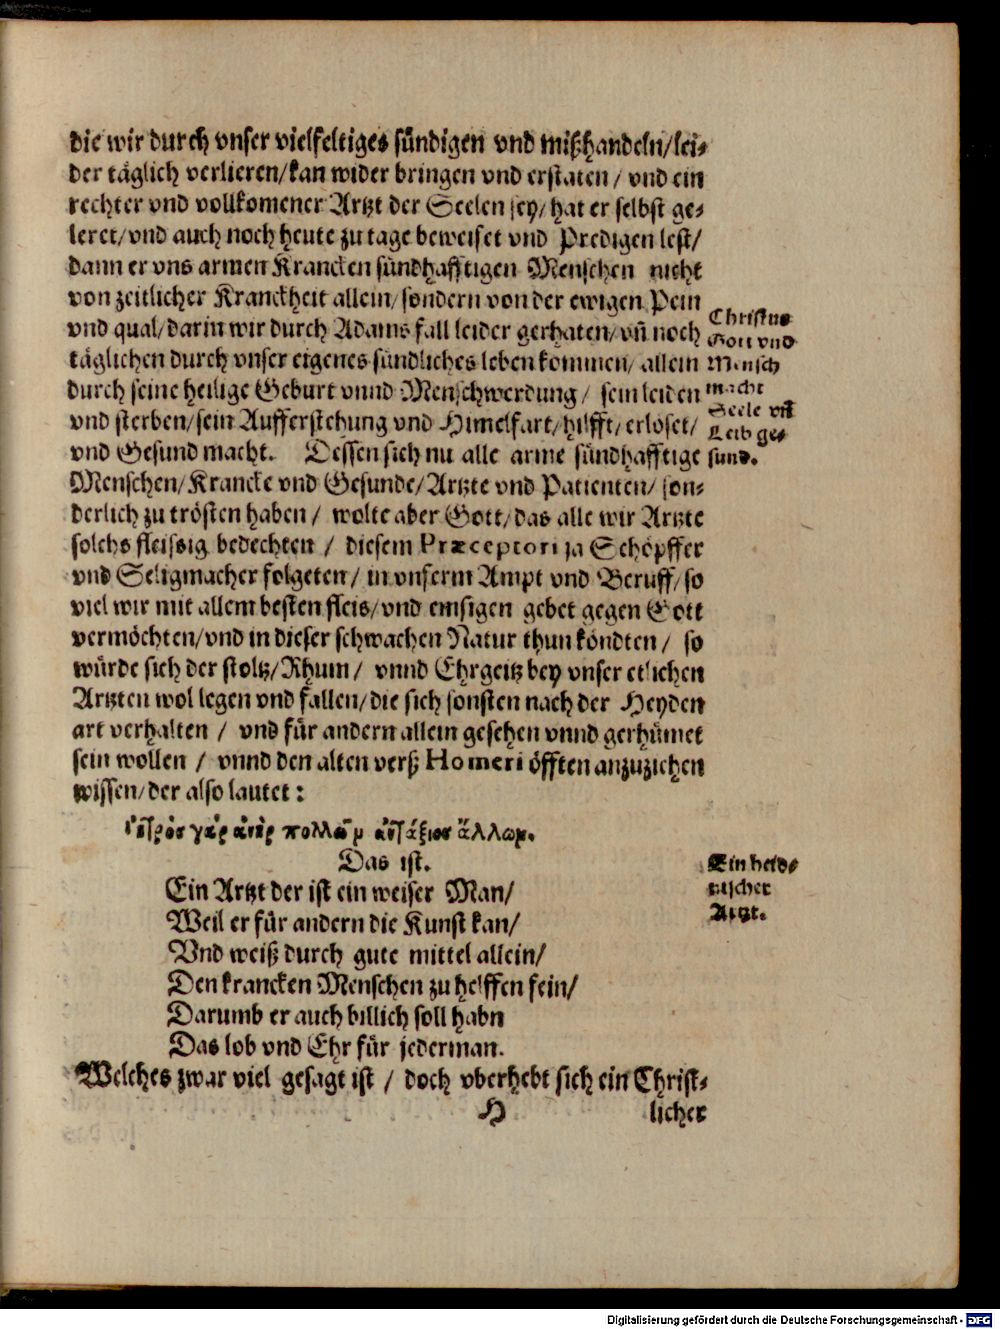 die wir durch vnser vielfeltiges sündigen vnd mißhandeln/lei-
der täglich verlieren/kan wider bringen vnd erstaten / vnd ein
rechter vnd vollkomener Artzt der Seelen sey/ hat er selbst ge-
leret/vnd auch noch heute zu tage beweiset vnd Predigen lest/
dann er vns armen Krancken sündhafftigen Menschen nicht
von zeitlicher Kranckheit allein/sondern von der ewigen Pein
vnd qual/darin wir durch Adams fall leider gerhaten/vñ noch
täglichen durch vnser eigenes sündliches leben kommen/ allein
durch seine heilige Geburt vnnd Menschwerdung / sein leiden
vnd sterben/sein Aufferstehung vnd Himelfart/hilfft/erlöset/
vnd Gesund macht. Dessen sich nu alle arme sündhafftige
Christus
Gott vnd
Mensch
macht
Seele vñ
Leib ge-
sund.
Menschen/Krancke vnd Gesunde/Artzte vnd Patienten/ son-
derlich zu trösten haben / wolte aber Gott/das alle wir Artzte
solchs fleissig bedechten / diesem Præceptori ja Schöpffer
vnd Seligmacher folgeten / in vnserm Ampt vnd Beruff/so
viel wir mit allem besten fleis/vnd emsigen gebet gegen Gott
vermöchten/vnd in dieser schwachen Natur thun köndten / so
würde sich der stoltz/Rhum / vnnd Ehrgeitz bey vnser etlichen
Artzten wol legen vnd fallen/die sich sonsten nach der Heyden
art verhalten / vnd für andern allein gesehen vnnd gerhümet
sein wollen / vnnd den alten verß Homeri öfften anzuziehen
wissen/der also lautet:
ἰητρὸς γὰρ ἀνὴρ πολλῶν ἀντάξιος ἄλλων.
Das ist.
Ein Artzt der ist ein weiser Man/
Weil er für andern die Kunst kan/
Vnd weiß durch gute mittel allein/
Den krancken Menschen zu helffen fein/
Darumb er auch billich soll habn
Das lob vnd Ehr für jederman.
Ein heid-
nischer
Artzt.
Welches zwar viel gesagt ist / doch vberhebt sich ein Christ-
H licher
Digitalisierung gefördert durch die Deutsche Forschungsgemeinschaft - DFG